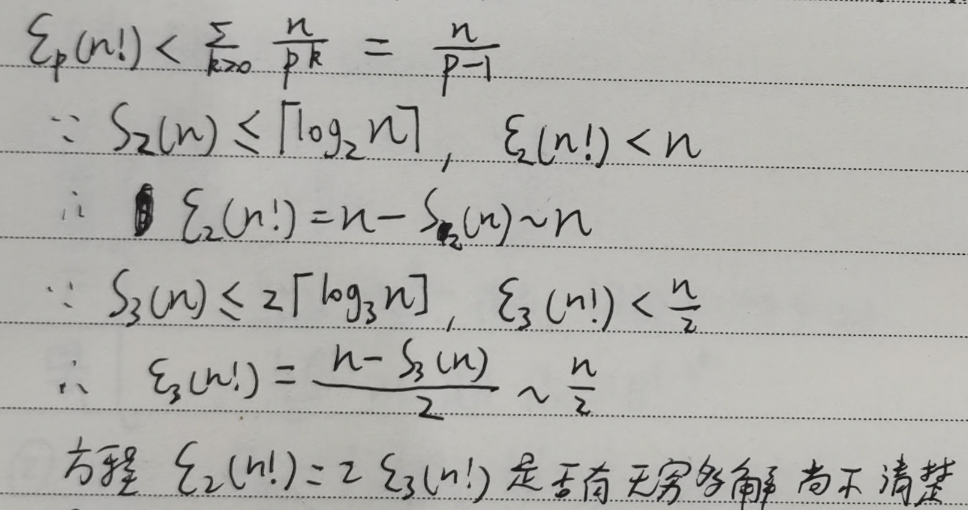 ε_p(n!) < Σ_{k>0} n/p^k = n/(p-1)
∵ S_2(n) ≤ ⌈log_2 n⌉, ε_2(n!) < n
∴ ε_2(n!) = n - S_2(n) ~ n
∵ S_3(n) ≤ 2⌈log_3 n⌉, ε_3(n!) < n/2
∴ ε_3(n!) = (n - S_3(n))/2 ~ n/2
方程 ε_2(n!) = 2 ε_3(n!) 是否有无穷多解 尚不清楚